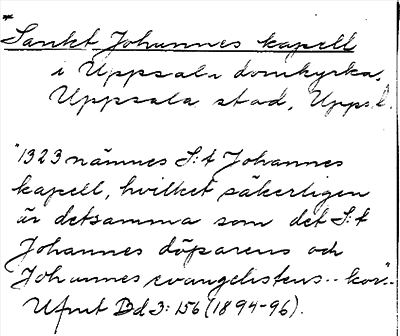 Sankt Johannes kapell
i Uppsala domkyrka,
Uppsala stad, Upps. l.
"1323 nämnes S:t Johannes
kapell, hvilket säkerligen
är detsamma som det S:t
Johannes döparens och
Johannes evangelistens .. kor"..
Ufmt Bd 3: 156 (1894-96).